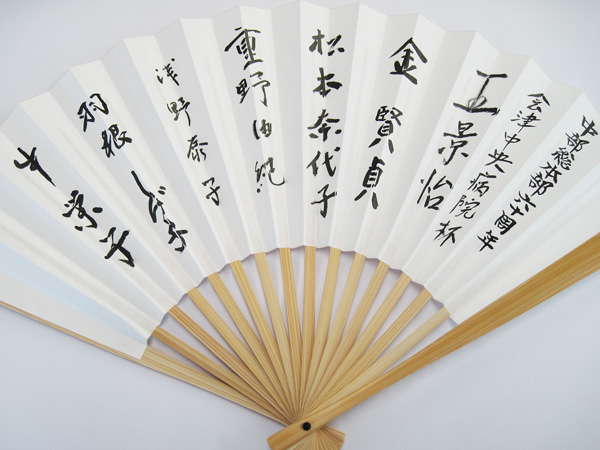 中部総本部六十周年
会津中央病院杯
王景怡
金賢貞
松本奈代子
重野由紀
浅野泰子
羽根しげ子
牛栄子